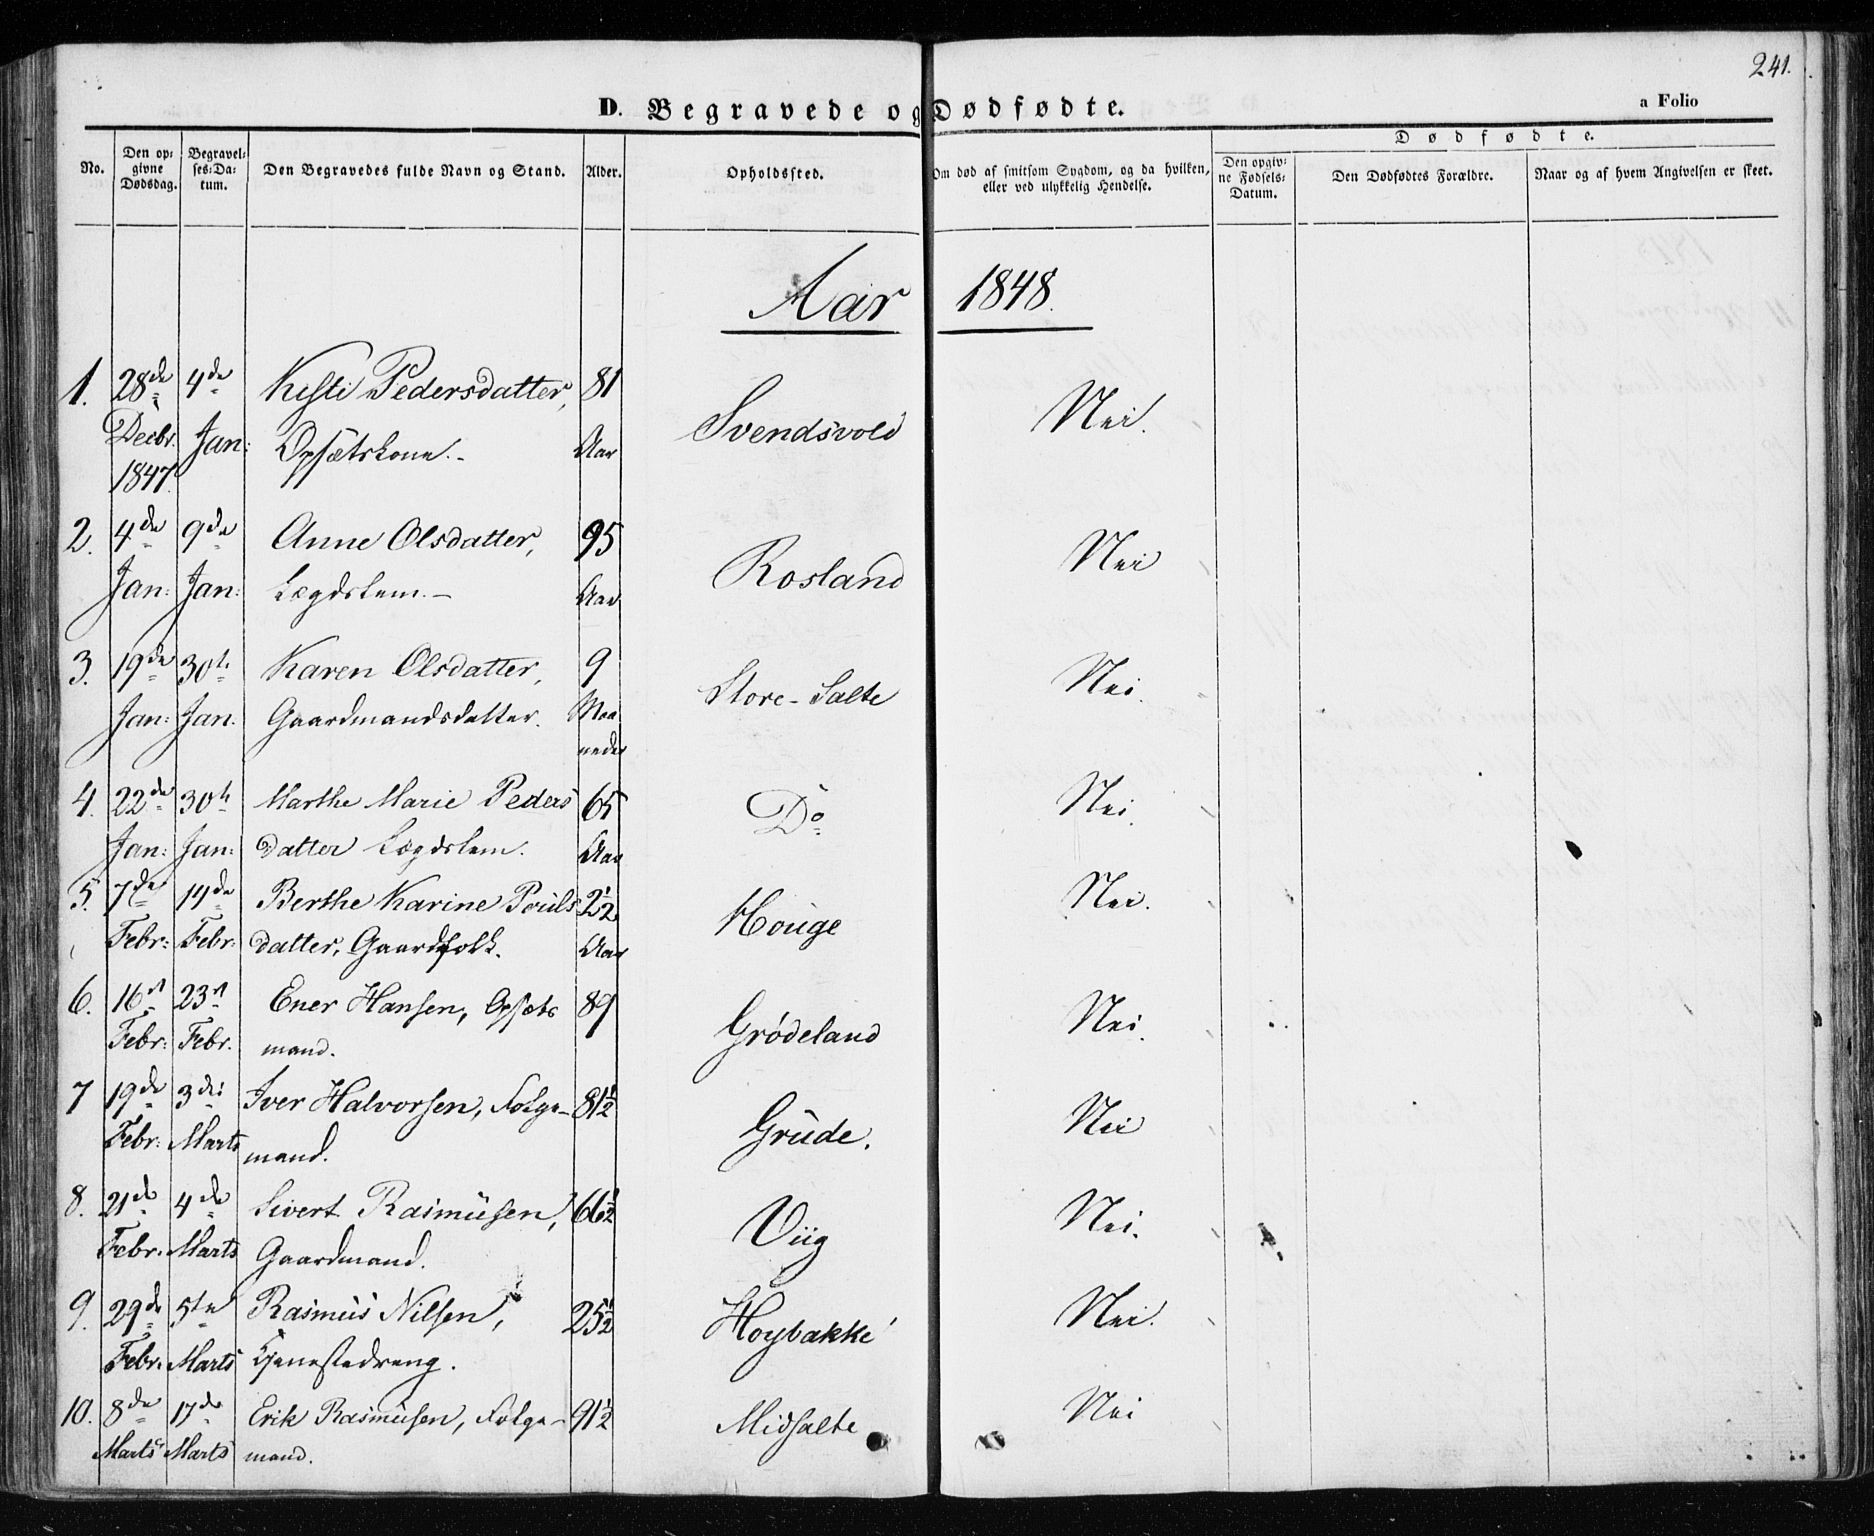 241.
D. Begravede og Dødfødte.
a Folio
No.
Den op-
givne
Dødsdag.
Begravel-
ses-Da-
tum.
Den Begravedes fulde Navn og Stand.
Alder.
Opholdssted.
Om død af smitsom Sygdom, og da hvilken,
eller ved ulykkelig Hendelse.
Dødfødte.
Den opgiv-
ne Fødsels-
Datum.
Den Dødfødtes Forældre.
Naar og af hvem Angivelsen er skeet.
Aar 1848.
1. 28de 4de Kisti Pedersdatter, 81 Svendsvold Nei.
Decbr. Jan: Opsætskone.- Aar
1847.
2. 4de 9de Anne Olsdatter, 95 Rosland Nei
Jan: Jan: Lægdslem.- Aar
3. 19de 30te Karen Olsdatter, 9 Store-Salte Nei.
Jan: Jan. Gaardmandsdatter. Maa
neder
4. 22de 30te Marthe Marie Peders 65 Do Nei.
Jan: Jan: datter Lægdslem. Aar
5. 7de 14de Berthe Karine Pouls 2½ Houge Nei.
Febr: Febr: datter, Gaardfolk. Aar
6. 16de 23de Ener Hansen, Opsæts 89 Grødeland Nei.
Febr: Febr. mand.
7 19de 3die Iver Halvorsen, Folge- 81½ Grude. Nei
Febr: Marts mand.
8. 21de 4de Sivert Rasmusen, 66½ Viig Nei.
Febr. Marts Gaardmand.
9. 29de 5te Rasmus Nilsen, 25½ Hoybakke Nei.
Febr. Marts Tjenestedreng.
10. 8de 17de Erik Rasmusen, Folge- 91½ Midsalte Nei
Marts Marts mand.